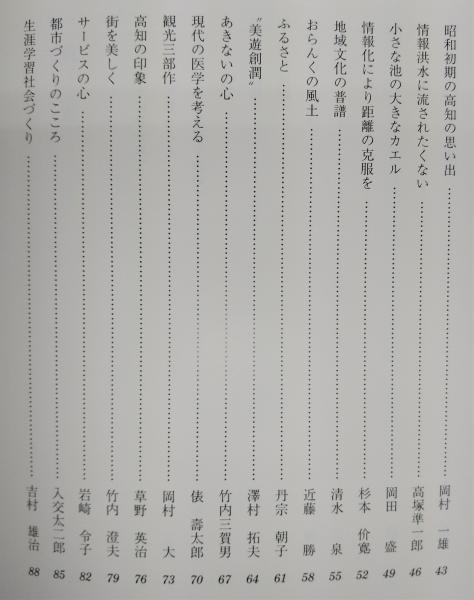 昭和初期の高知の思い出 岡村 一雄 43
情報洪水に流されたくない 高塚準一郎 46
小さな池の大きなカエル 岡田 盛 49
情報化により距離の克服を 杉本 价寛 52
地域文化の普譜 清水 泉 55
おらんくの風土 近藤 勝 58
ふるさと 丹宗 朝子 61
“美遊創潤” 澤村 拓夫 64
あきないの心 竹内三賀男 67
現代の医学を考える 俵 壽太郎 70
観光三部作 岡村 大 73
高知の印象 草野 英治 76
街を美しく 竹内 澄夫 79
サービスの心 岩崎 令子 82
都市づくりのこころ 入交太二郎 85
生涯学習社会づくり 吉村 雄治 88